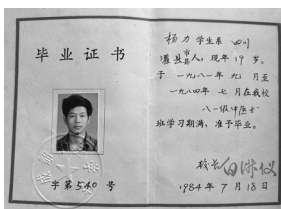 毕业证书
字第540号
杨力学生系四川
灌县市县人,现年19岁。
于一九八一年九月至
一九八四年七月在我校
八一级中医士
班学习期满,准予毕业。
校长
1984年7月18日